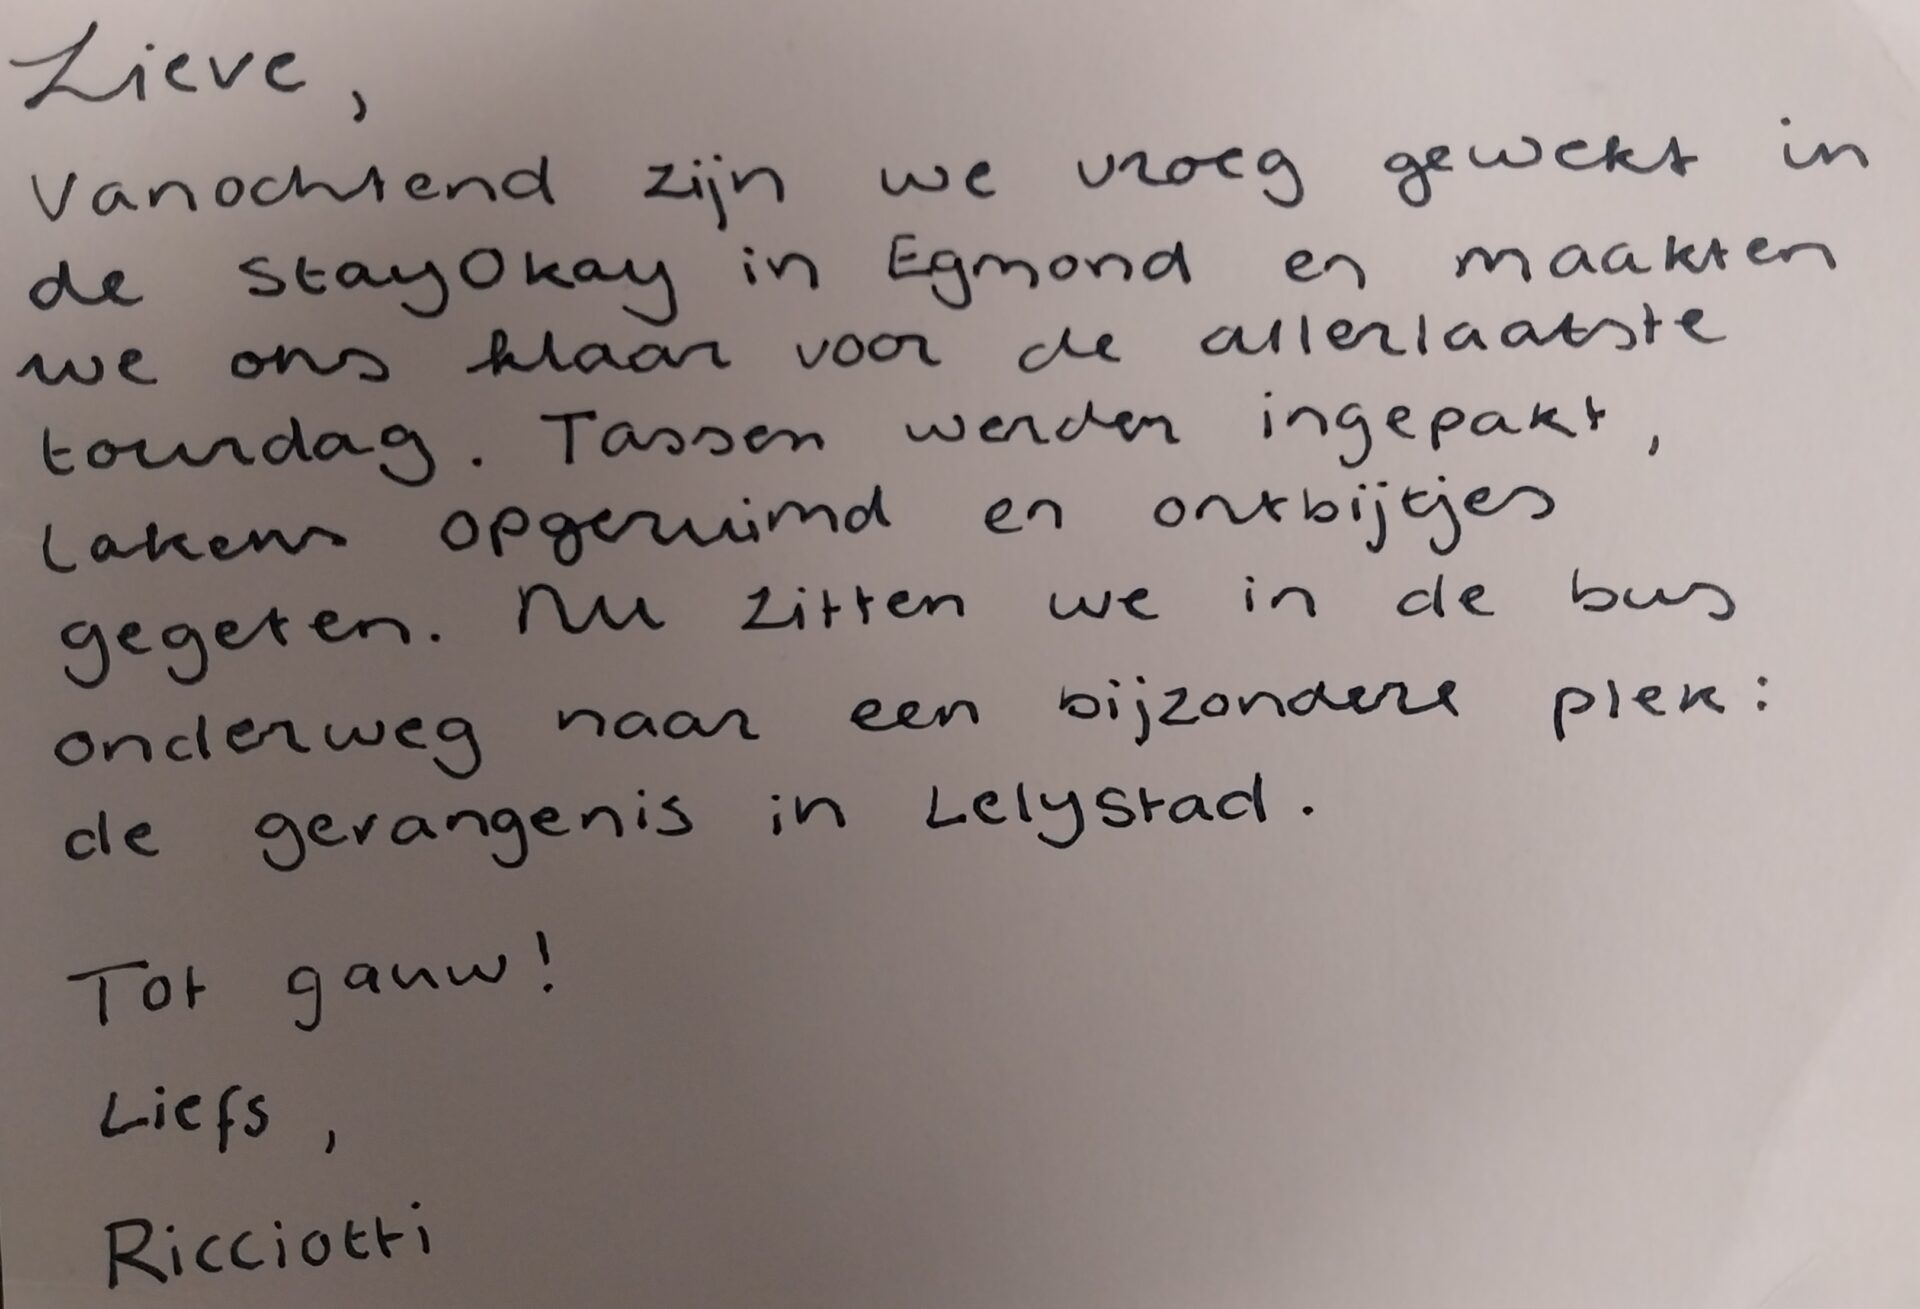 Lieve,
Vanochtend zijn we vroeg gewekt in
de StayOkay in Egmond en maakten
we ons klaar voor de allerlaatste
tourdag. Tassen werden ingepakt,
lakens opgeruimd en ontbijtjes
gegeten. Nu zitten we in de bus
onderweg naar een bijzondere plek:
de gevangenis in Lelystad.
Tot gauw!
Liefs,
Ricciotti